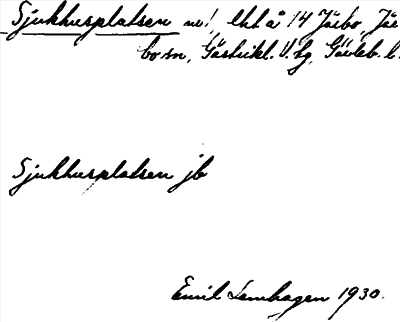 Sjukhusplatsen m!, lht å 14 Järbo, Jär
bo sn, Gästrikl. V. tg, Gävleb. l.
Sjukhusplatsen jb
Emil Lamhagen 1930.